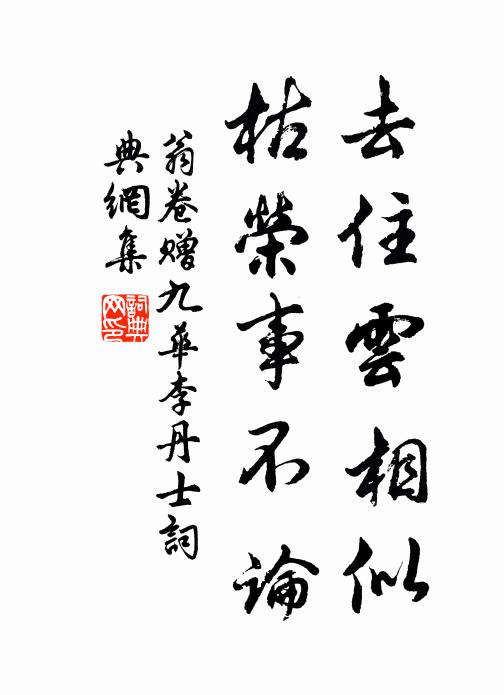 去住雲相似
枯榮事不論
翁卷贈九華李丹士詞
典網集
詞典
网印